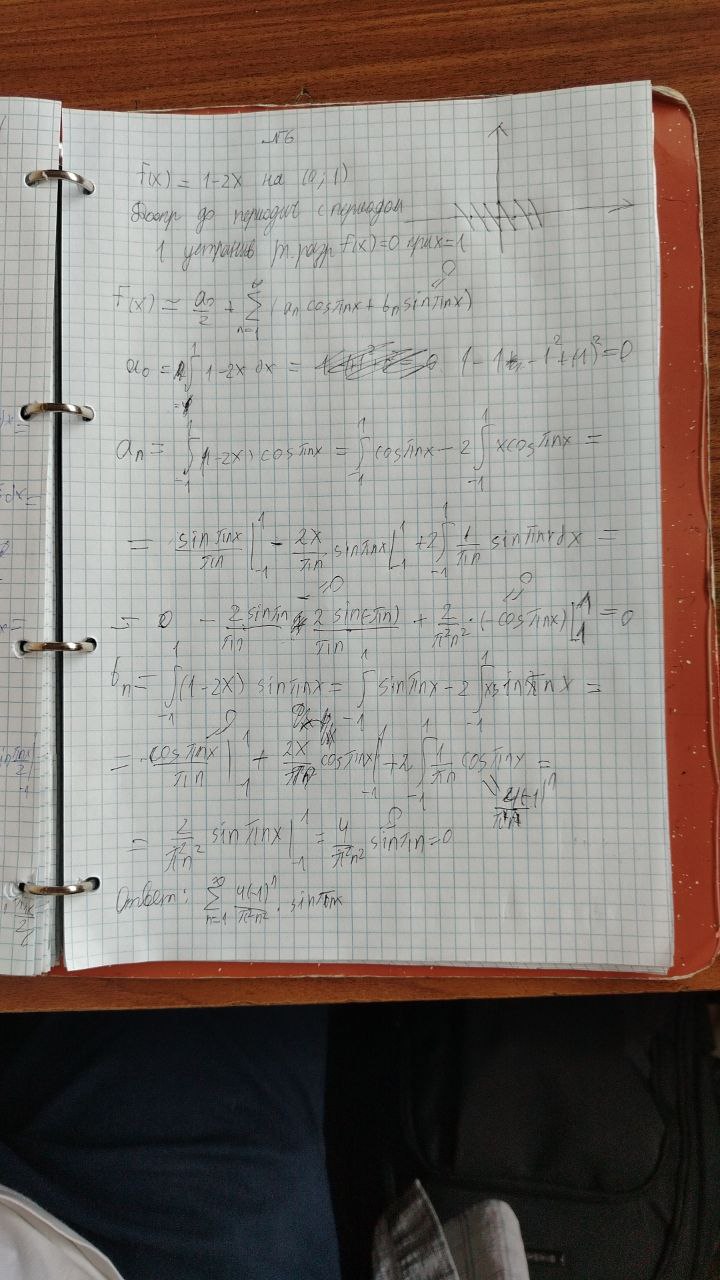 №6
f(x) = 1-2x на (0; 1)
до периодич с периодом
1 устранив f(x)=0 при x=1
f(x) = a₀/2 + ∑ₙ₌₁^∞ (aₙ cosπnx + bₙ sinπnx)
a₀ = ∫ 1-2x dx = 0
aₙ = ∫₋₁¹ (1-2x) cosπnx = ∫₋₁¹ cosπnx - 2∫₋₁¹ xcosπnx =
= sinπnx/πn |₋₁¹ - 2x/πn sinπnx |₋₁¹ + 2∫₋₁¹ 1/πn sinπnx dx =
= 0 - 2sinπn/πn - 2sin(-πn)/πn + 2/π²n² · (-cosπnx)|₋₁¹ = 0
bₙ = ∫₋₁¹ (1-2x) sinπnx = ∫₋₁¹ sinπnx - 2∫₋₁¹ xsinπnx =
= -cosπnx/πn |₋₁¹ + 2x/πn cosπnx |₋₁¹ + 2∫₋₁¹ 1/πn cosπnx =
= 2/π²n² sinπnx |₋₁¹ = 4/π²n² sinπn = 0
Ответ: ∑ₙ₌₁^∞ 4(-1)ⁿ/π²n² · sinπnx